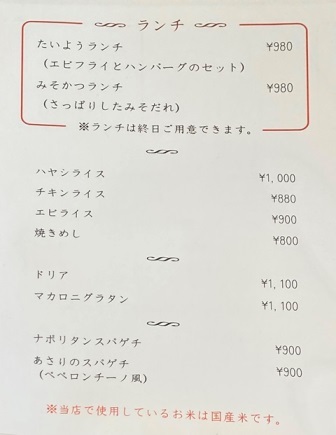 ランチ
たいようランチ ¥980
(エビフライとハンバーグのセット)
みそかつランチ ¥980
(さっぱりしたみそだれ)
※ランチは終日ご用意できます。
ハヤシライス ¥1,000
チキンライス ¥880
エビライス ¥900
焼きめし ¥800
ドリア ¥1,100
マカロニグラタン ¥1,100
ナポリタンスパゲチ ¥900
あさりのスパゲチ ¥900
(ペペロンチーノ風)
※当店で使用しているお米は国産米です。